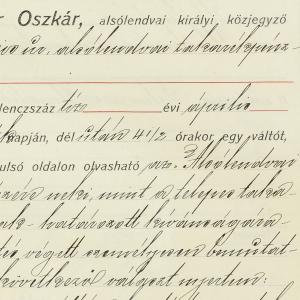 r Oszkár, alsólendvai királyi közjegyző
úr, alsólendvai takarékpénz-
lenczszáz tíz évi április
napján, dél után 4 1/2 órakor egy váltót,
ulsó oldalon olvasható az Alsólendvai
neki, mint a telepes taka
határozott kívánságára
végett személyesen bemutat-
következő választ nyertem: